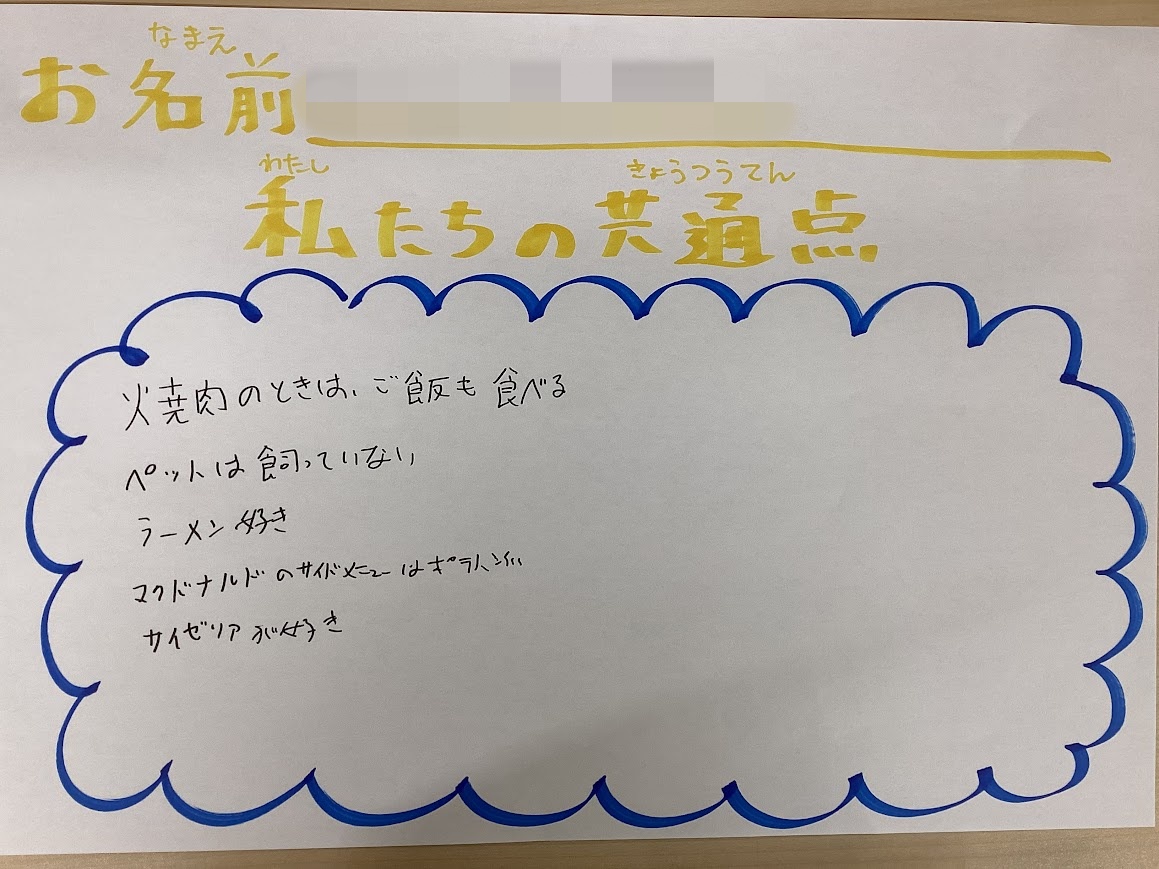 なまえ
お名前
わたし きょうつうてん
私たちの共通点
火焼肉のときは、ご飯も食べる
ペットは飼っていない
ラーメン好き
マクドナルドのサイドメニューはポテト
サイゼリアが好き